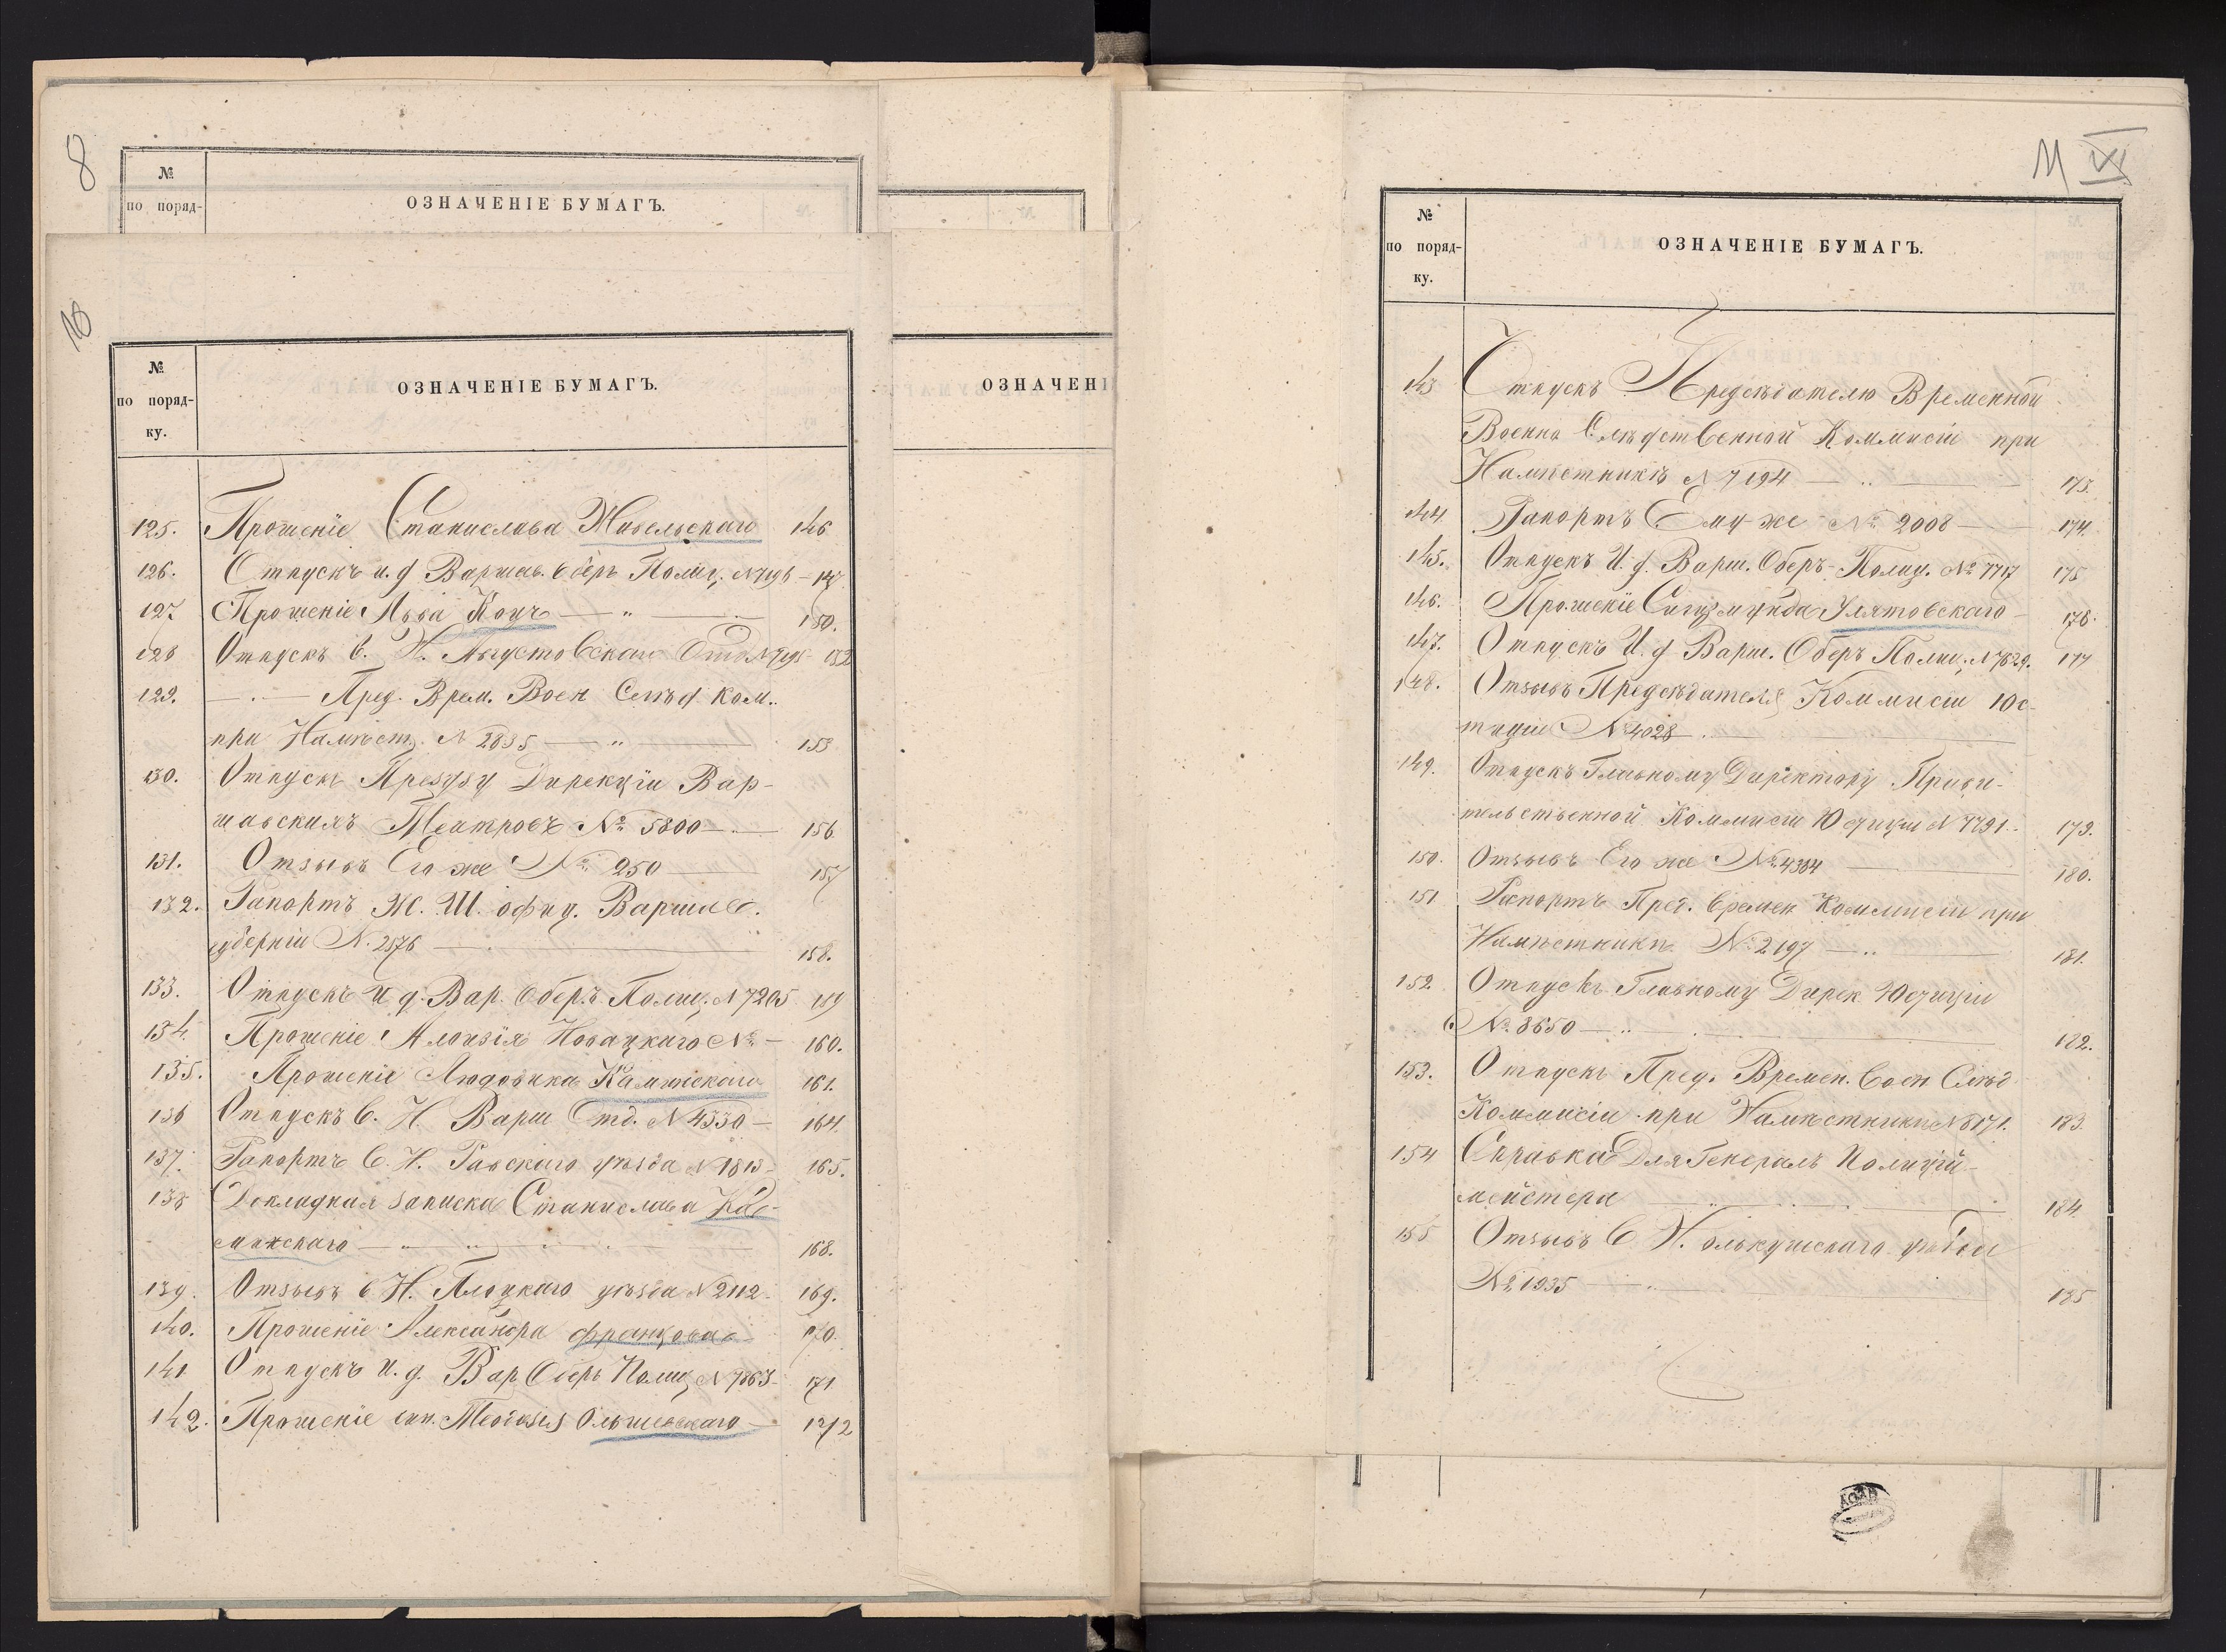 8
№
по поряд-
ОЗНАЧЕНІЕ БУМАГЪ.
10
№
по поряд-
ку.
ОЗНАЧЕНІЕ БУМАГЪ.
125. Прошеніе Станислава 146
126. Отпускъ и. д. Варшав. Оберъ Полиц. N 7196 — 147
127 Прошеніе Льва Коцъ — " — 150.
128 Отпускъ В. Н. Августовскаго Отд. N 7198 152
129. — " — Пред. Врем. Воен Слѣд Ком.
при Намѣст. N 2835 — " — 153
130. Отпускъ Президу Дирекціи Вар-
шавскихъ Театровъ № 5800 — 156
131. Отзывъ Его же № 250 — 157
132. Рапортъ Ж. Ш. офиц. Варшав.
губерніи N. 2576 — 158.
133. Отпускъ и д. Вар. Оберъ Полиц. N 7205 159
134. Прошеніе Алоизія Новацкаго № — 160.
135. Прошеніе Людовика Каминскаго 161.
136 Отпускъ В. Н. Варш Отд. N 4330 — 164.
137. Рапортъ В. Н. Равскаго уѣзда N 1813 — 165.
138 Докладная записка Станислава Ка-
— " — " — 168.
139. Отзывъ В Н. Плоцкаго уѣзда N 2112 — 169.
140. Прошеніе Александра 170.
141 Отпускъ И. д. Вар Оберъ Полиц N 7863 — 171
142. Прошеніе Ольшевскаго — 172
ОЗНАЧЕНІ
11 VI
№
по поряд-
ку.
ОЗНАЧЕНІЕ БУМАГЪ.
143 Отпускъ Предсѣдателю Временной
Военно Слѣдственной Коммисіи при
Намѣстникѣ N 7194 — " — 173.
144. Рапортъ Ему же № 2008 — 174.
145. Отпускъ И. д. Варш. Оберъ-Полиц. № 7717 175
146. Прошеніе Сигизмунда Улятовскаго — 176.
147. Отпускъ И. д Варш. Оберъ Полиц. N 7829. 177
148. Отзывъ Предсѣдателя Коммисіи Юс-
тиціи № 4028 —
149. Отпускъ Главному Директору Прави-
тельственной Коммисіи Юстиціи N 7791 — 179.
150. Отзывъ Его же № 4304 — 180.
151 Рапортъ Пред. Времен Коммисіи при
Намѣстникѣ № 2197 — " — 181.
152. Отпускъ Главному Дирек Юстиціи
№ 8650 — " — 182.
153. Отпускъ Пред. Времен. Воен Слѣд
Коммисіи при Намѣстникѣ N 8171. 183.
154 Справка Для Генералъ Полицій-
мейстера — 184.
155 Отзывъ В Н. Олькушскаго уѣзда
№ 1935 — " — 185